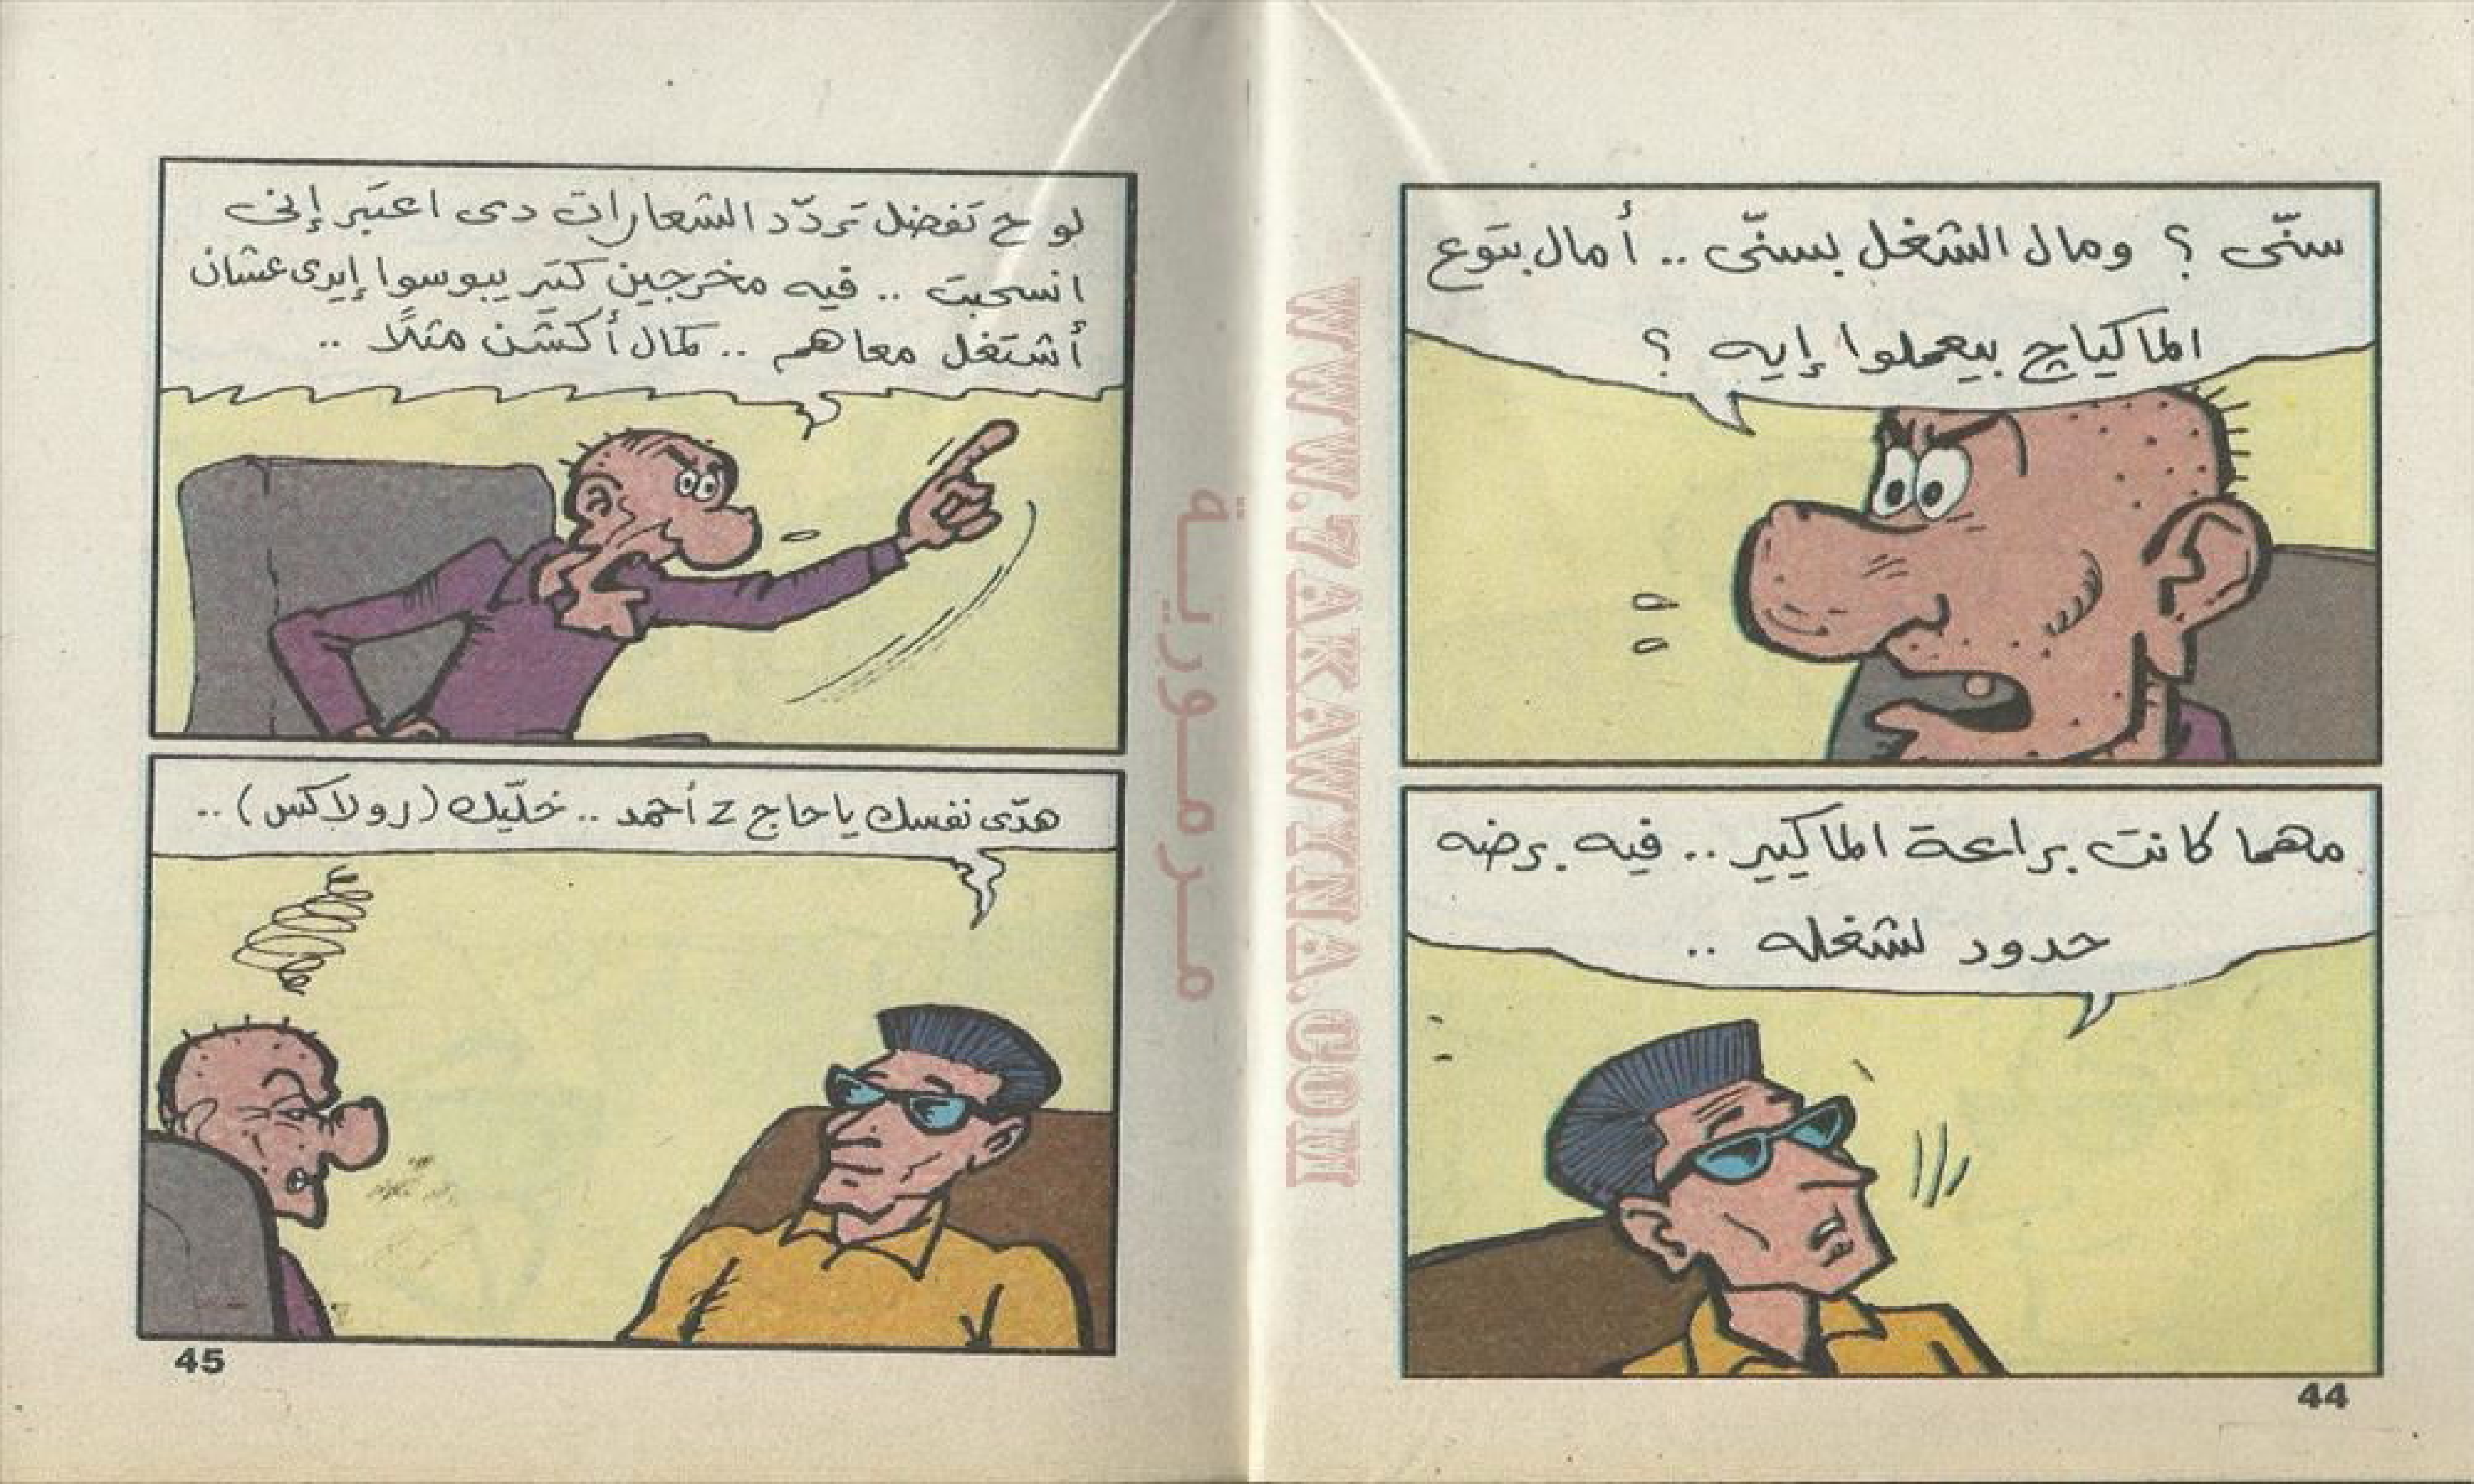 سنّى ؟ ومال الشغل بسنّى .. أمال بتوع
الماكياج بيعملوا إيه ؟
مهما كانت براعة الماكيير .. فيه برضه
حدود لشغله ..
44
لو ح تفضل تردّد الشعارات دى اعتبر إنى
انسحبت .. فيه مخرجين كتير يبوسوا إيدى عشان
أشتغل معاهم .. كمال أكشن مثلاً ..
هدّى نفسك ياحاج z أحمد .. خلّيك (رولاكس) ..
45
WWW.7AKAWINA.COM
مرمورية